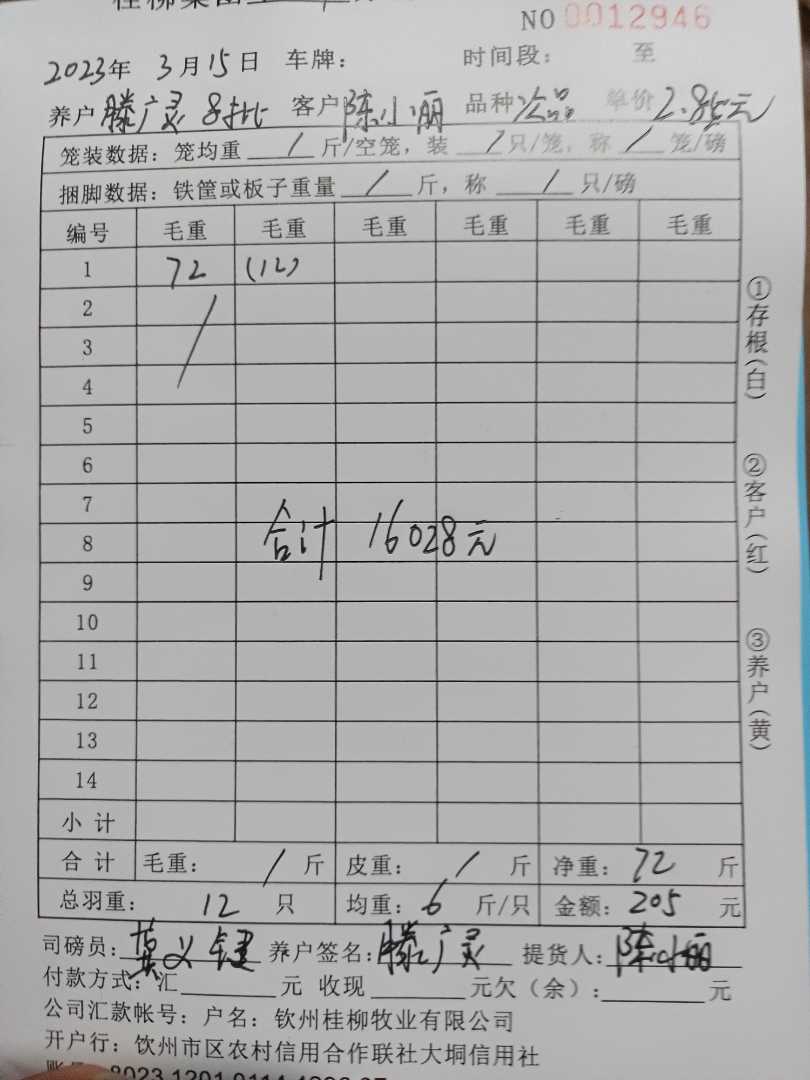 NO 0012946
2023年 3月15日 车牌： 时间段： 至
养户 滕广灵 8批 客户 陈小丽 品种 次品 单价 2.85元
笼装数据：笼均重 / 斤/空笼，装 / 只/笼，称 / 笼/磅
捆脚数据：铁筐或板子重量 / 斤，称 / 只/磅
编号 毛重 毛重 毛重 毛重 毛重 毛重
1 72 (12)
2
3
4
5
6
7
8
合计 16028元
9
10
11
12
13
14
小 计
合 计 毛重： / 斤 皮重： / 斤 净重：72 斤
总羽重： 12 只 均重：6 斤/只 金额：205 元
司磅员： 义 养户签名：滕广灵 提货人：陈小丽
付款方式：汇 元 收现 元欠（余）： 元
公司汇款帐号：户名：钦州桂柳牧业有限公司
开户行：钦州市区农村信用合作联社大垌信用社
①存根(白)
②客户(红)
③养户(黄)